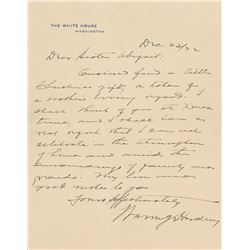 THE WHITE HOUSE
WASHINGTON
Dec 23/22
Dear Sister Abigail:
Enclosed find a little
Christmas gift, a token of
a brother's loving regard. I
shall think of you at Xmas
time, and I shall have
regret that I can not
celebrate in the atmosphere
of home and amidst the
of family and
friends. My love and
good wishes to you.
Yours Affectionately
Warren G Harding